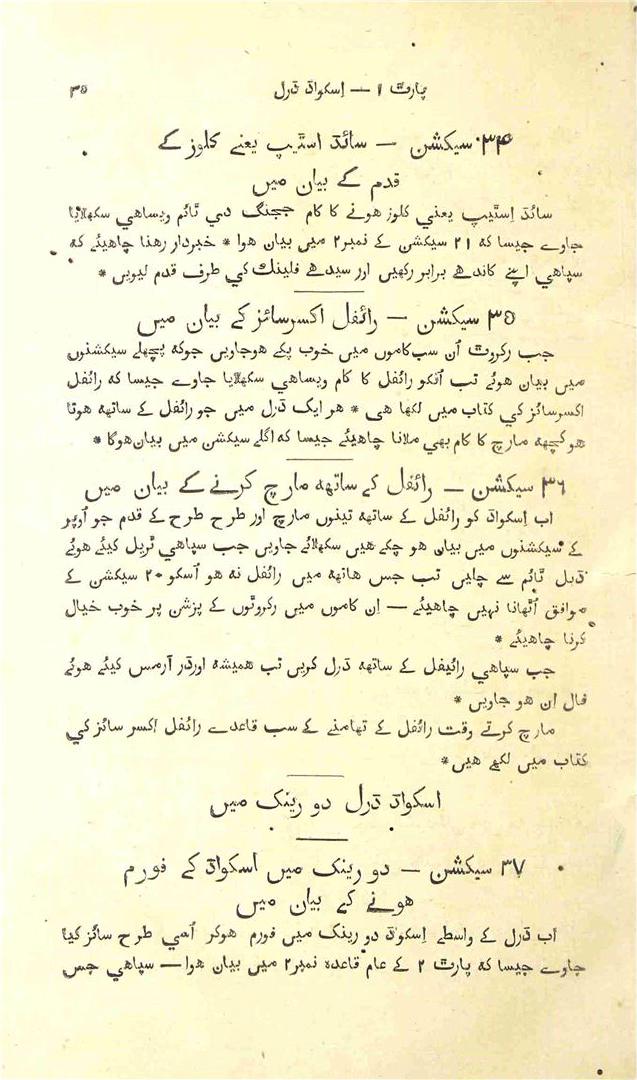 پارٹ ۱ — اِسکواڈ ڈرل ۳۵
۳۴ سیکشن — سائڈ اسٹیپ یعنے کلوز کے
قدم کے بیان میں
سائڈ اِسٹیپ یعنی کلوز ھونے کا کام ججنگ دی ٹائم ویساھی سکھلایا
جاوے جیسا کہ ۲۱ سیکشن کے نمبر ۲ میں بیان ھوا * خبردار رھنا چاھیئے کہ
سپاھی اپنے کاندھے برابر رکھیں اور سیدھے فلینک کی طرف قدم لیویں *
۳۵ سیکشن — رائفل اکسرسائز کے بیان میں
جب رکروٹ اُن سب کاموں میں خوب پکے ھوجاویں جوکہ پچھلے سیکشنوں
میں بیان ھوئے تب اُنکو رائفل کا کام ویساھی سکھلایا جاوے جیسا کہ رائفل
اکسرسائز کی کتاب میں لکھا ھی * ھر ایک ڈرل میں جو رائفل کے ساتھہ ھوتا
ھو کچھہ مارچ کا کام بھی ملانا چاھیئے جیسا کہ اگلے سیکشن میں بیان ھوگا *
۳۶ سیکشن — رائفل کے ساتھہ مارچ کرنے کے بیان میں
اب اِسکواڈ کو رائفل کے ساتھہ تینوں مارچ اور طرح طرح کے قدم جو اُوپر
کے سیکشنوں میں بیان ھو چکے ھیں سکھلائے جاویں جب سپاھی ٹریل کیئے ھوئے
ڈبل ٹائم سے چلیں تب جس ھاتھہ میں رائفل نہ ھو اُسکو ۲۰ سیکشن کے
موافق اُٹھانا نہیں چاھیئے — اِن کاموں میں رکروٹوں کے پزشن پر خوب خیال
کرنا چاھیئے *
جب سپاھی رائیفل کے ساتھہ ڈرل کریں تب ھمیشہ اورڈر آرمس کیئے ھوئے
فال ان ھو جاویں *
مارچ کرتے وقت رائفل کے تھامنے کے سب قاعدے رائفل اکسر سائز کی
کتاب میں لکھے ھیں *
اسکواڈ ڈرل دو رینک میں
۳۷ سیکشن — دو رینک میں اسکواڈ کے فورم
ھونے کے بیان میں
اب ڈرل کے واسطے اِسکوڈ دو رینک میں فورم ھوکر اُسی طرح سائز کیا
جاوے جیسا کہ پارٹ ۲ کے عام قاعدہ نمبر ۲ میں بیان ھوا — سپاھی جس